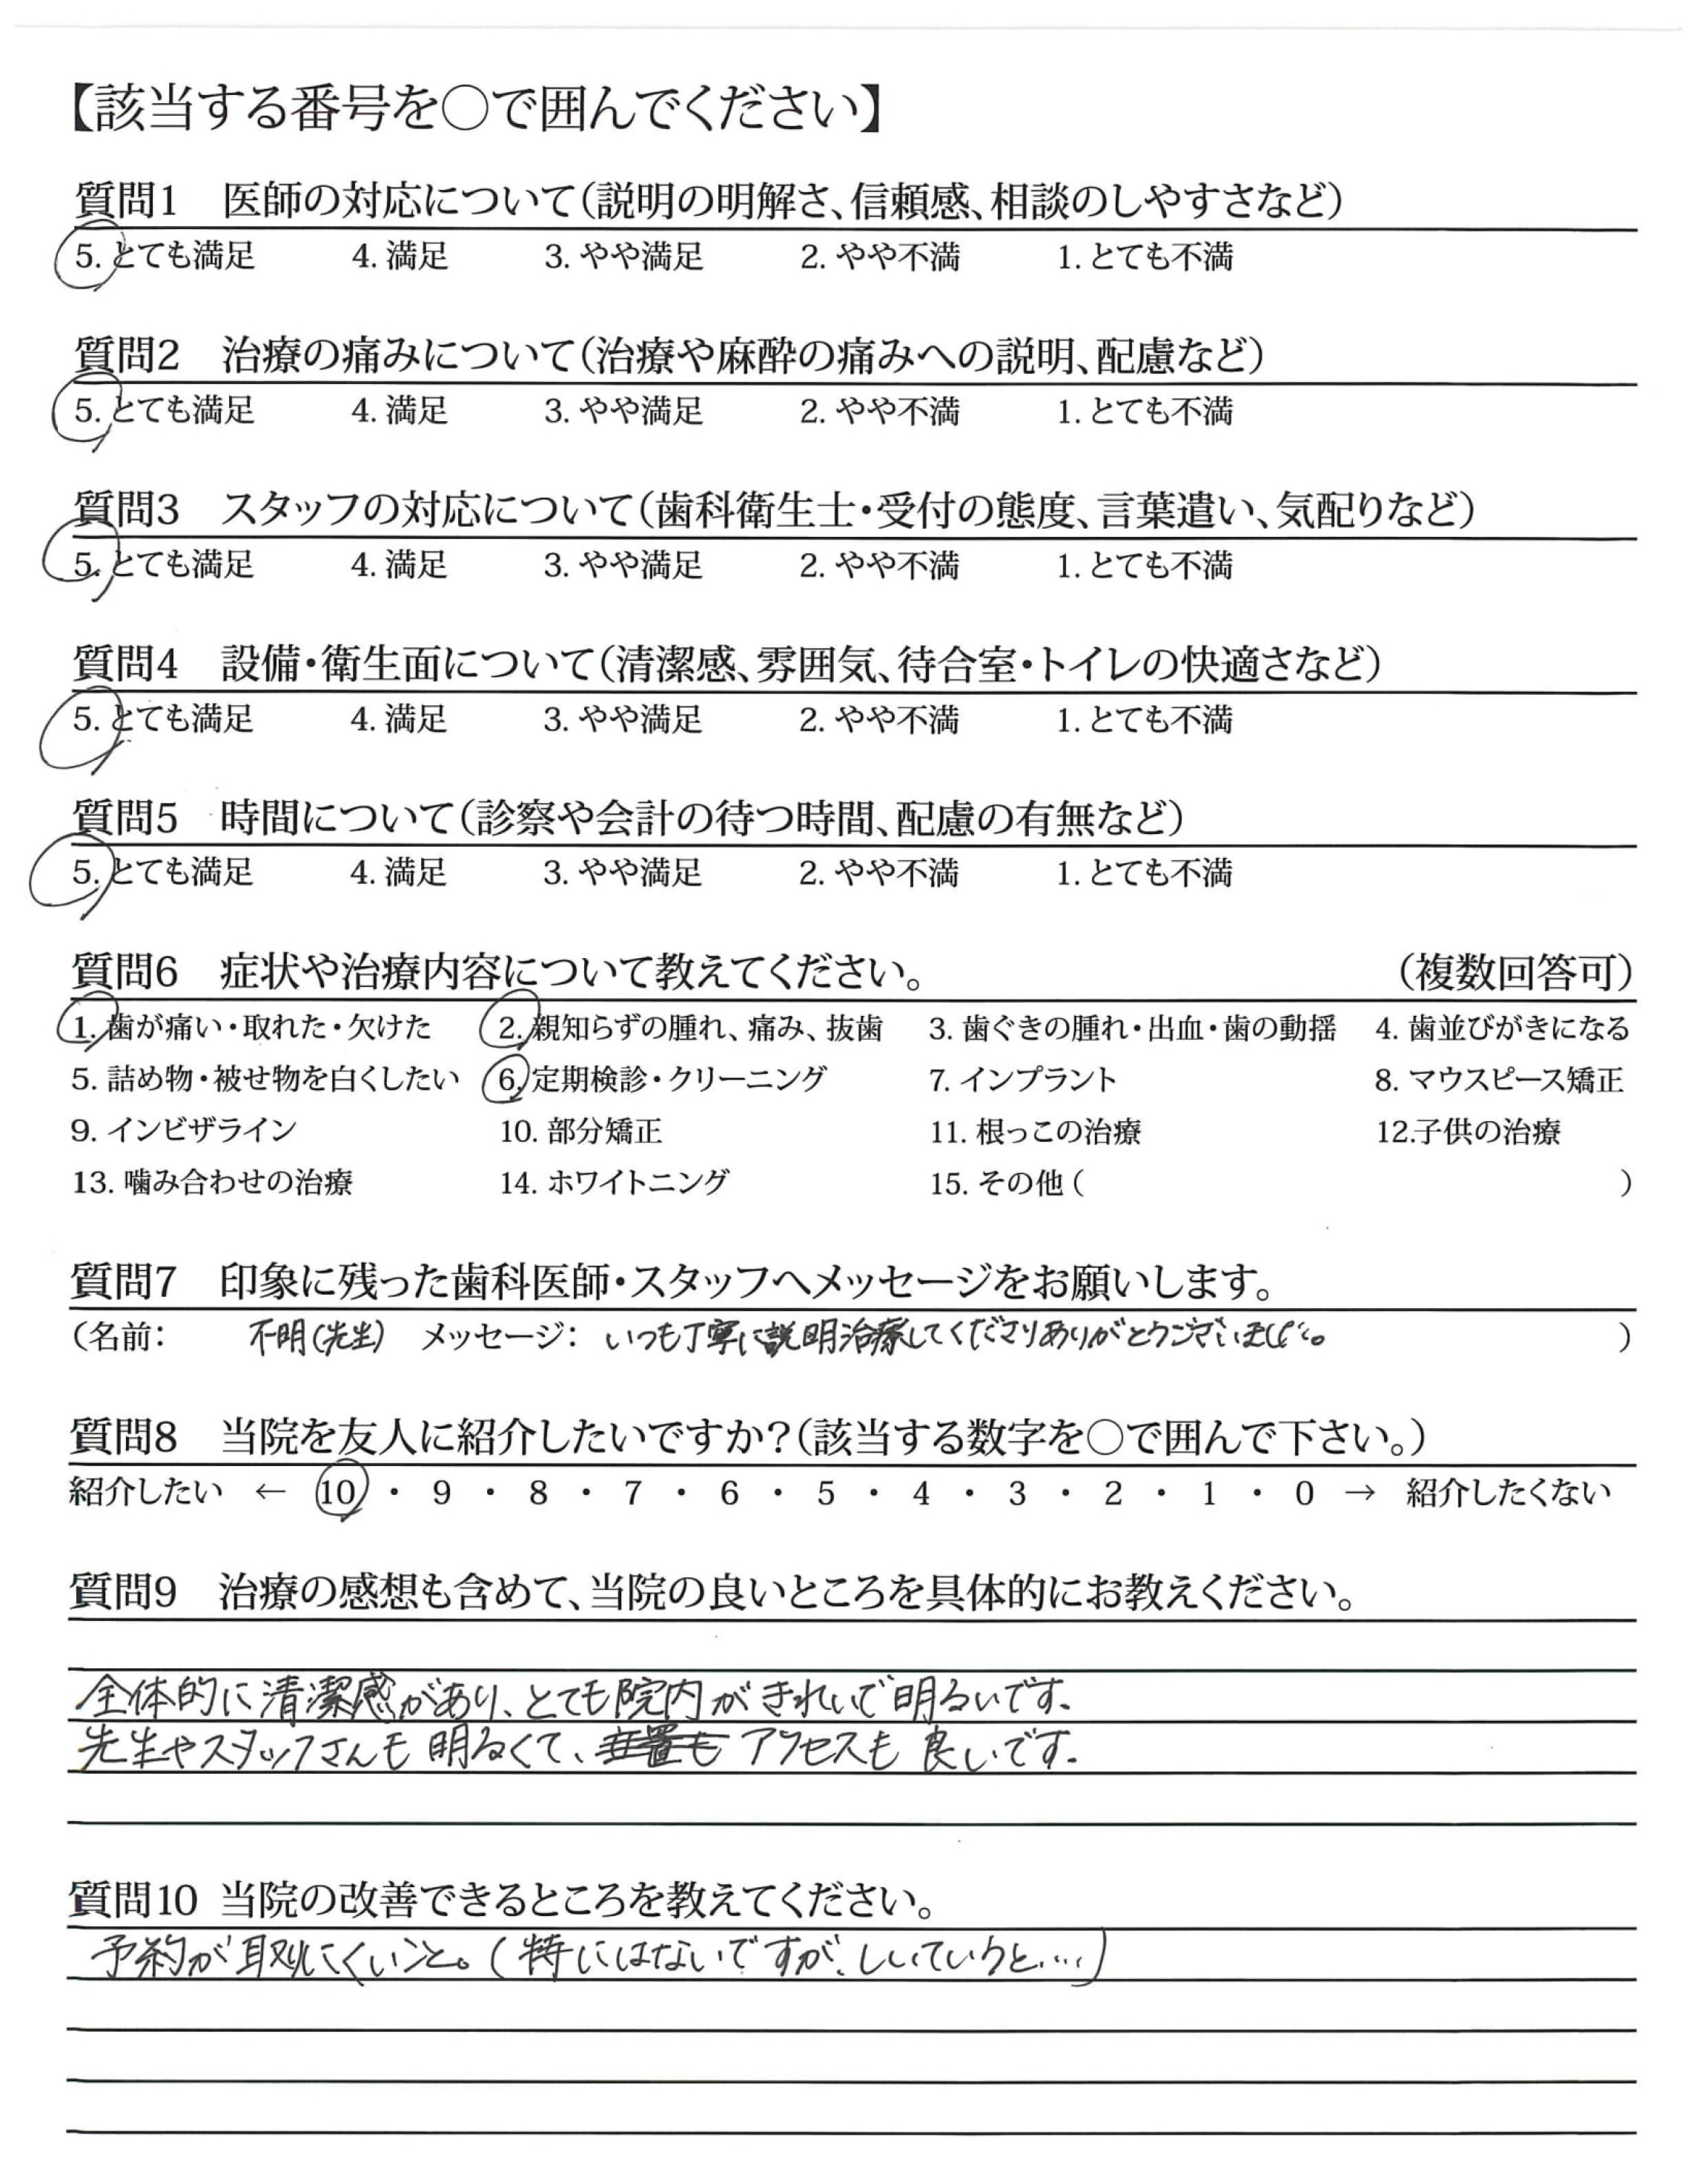 【該当する番号を○で囲んでください】
質問1 医師の対応について(説明の明解さ、信頼感、相談のしやすさなど)
5. とても満足 4. 満足 3. やや満足 2. やや不満 1. とても不満
質問2 治療の痛みについて(治療や麻酔の痛みへの説明、配慮など)
5. とても満足 4. 満足 3. やや満足 2. やや不満 1. とても不満
質問3 スタッフの対応について(歯科衛生士・受付の態度、言葉遣い、気配りなど)
5. とても満足 4. 満足 3. やや満足 2. やや不満 1. とても不満
質問4 設備・衛生面について(清潔感、雰囲気、待合室・トイレの快適さなど)
5. とても満足 4. 満足 3. やや満足 2. やや不満 1. とても不満
質問5 時間について(診察や会計の待つ時間、配慮の有無など)
5. とても満足 4. 満足 3. やや満足 2. やや不満 1. とても不満
質問6 症状や治療内容について教えてください。 (複数回答可)
1. 歯が痛い・取れた・欠けた 2. 親知らずの腫れ、痛み、抜歯 3. 歯ぐきの腫れ・出血・歯の動揺 4. 歯並びがきになる
5. 詰め物・被せ物を白くしたい 6. 定期検診・クリーニング 7. インプラント 8. マウスピース矯正
9. インビザライン 10. 部分矯正 11. 根っこの治療 12.子供の治療
13. 噛み合わせの治療 14. ホワイトニング 15. その他 ( )
質問7 印象に残った歯科医師・スタッフへメッセージをお願いします。
(名前: 不明(先生) メッセージ: いつも丁寧に説明治療してくださりありがとうございました。 )
質問8 当院を友人に紹介したいですか?(該当する数字を○で囲んで下さい。)
紹介したい ← 10 ・ 9 ・ 8 ・ 7 ・ 6 ・ 5 ・ 4 ・ 3 ・ 2 ・ 1 ・ 0 → 紹介したくない
質問9 治療の感想も含めて、当院の良いところを具体的にお教えください。
全体的に清潔感があり、とても院内がきれいで明るいです。
先生やスタッフさんも明るくて、アクセスも良いです。
質問10 当院の改善できるところを教えてください。
予約が取りにくいこと。(特にはないですが、しいていうと…)